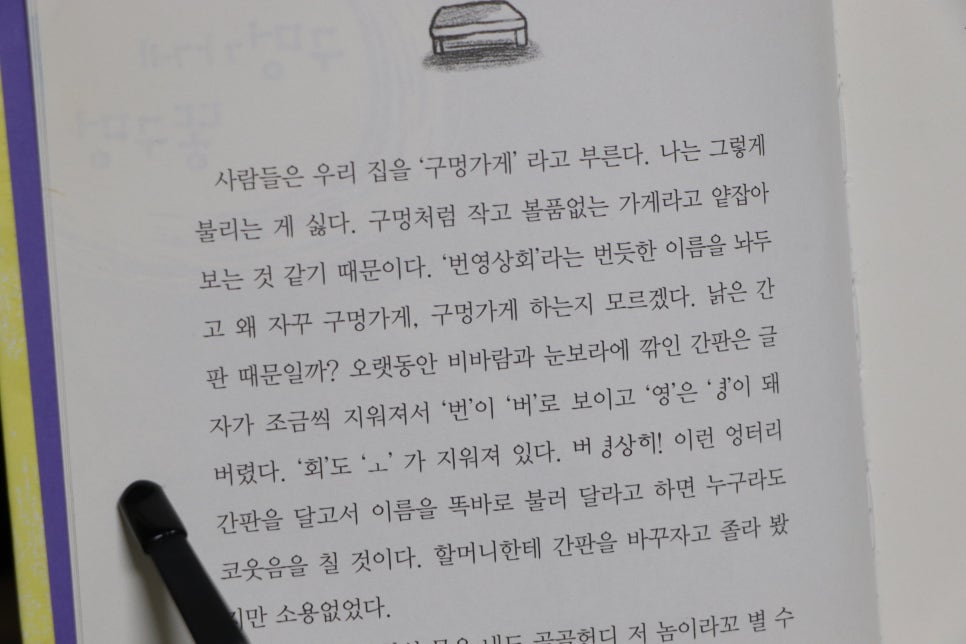 사람들은 우리 집을 ‘구멍가게’ 라고 부른다. 나는 그렇게
불리는 게 싫다. 구멍처럼 작고 볼품없는 가게라고 얕잡아
보는 것 같기 때문이다. ‘번영상회’라는 번듯한 이름을 놔두
고 왜 자꾸 구멍가게, 구멍가게 하는지 모르겠다. 낡은 간
판 때문일까? 오랫동안 비바람과 눈보라에 깎인 간판은 글
자가 조금씩 지워져서 ‘번’이 ‘버’로 보이고 ‘영’은 ‘ㅕㅇ’이 돼
버렸다. ‘회’도 ‘ㅗ’ 가 지워져 있다. 버 ㅕㅇ상히! 이런 엉터리
간판을 달고서 이름을 똑바로 불러 달라고 하면 누구라도
코웃음을 칠 것이다. 할머니한테 간판을 바꾸자고 졸라 봤
소용없었다.
저 놈이라꼬 별 수